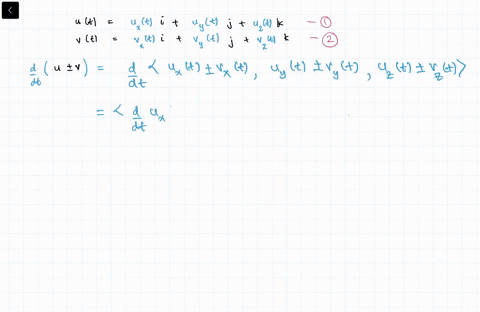 u(t) = uₓ(t) i + u_y(t) j + u_z(t) k — ①
v(t) = vₓ(t) i + v_y(t) j + v_z(t) k — ②
d/dt (u ± v) = d/dt < uₓ(t) ± vₓ(t), u_y(t) ± v_y(t), u_z(t) ± v_z(t) >
= < d/dt uₓ